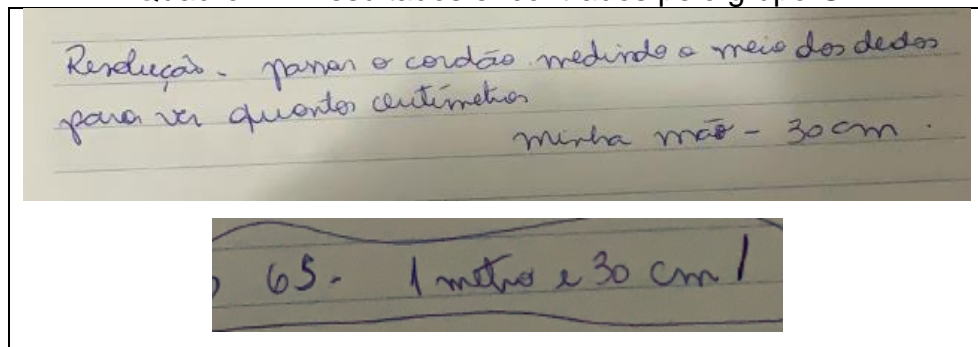 Resolução - passar o cordão medindo o meio dos dedos
para ver quantos centímetros
minha mão - 30 cm.
65 - 1 metro e 30 cm